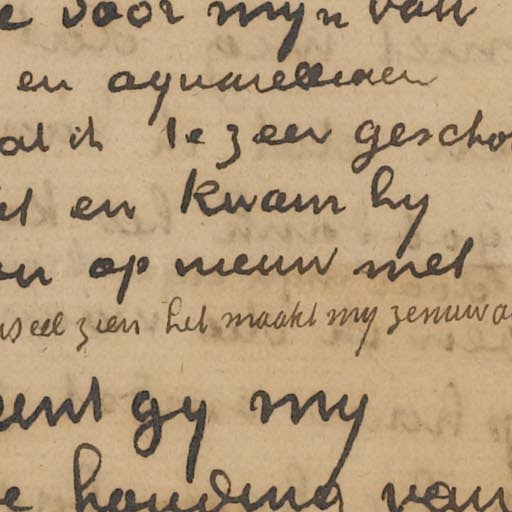 e voor myn van
en aquarelleeren
at ik te zeer gescho
et en kwam hy
en op nieuw met
zien het maakt my zenuwa
ent gy my
e houding van